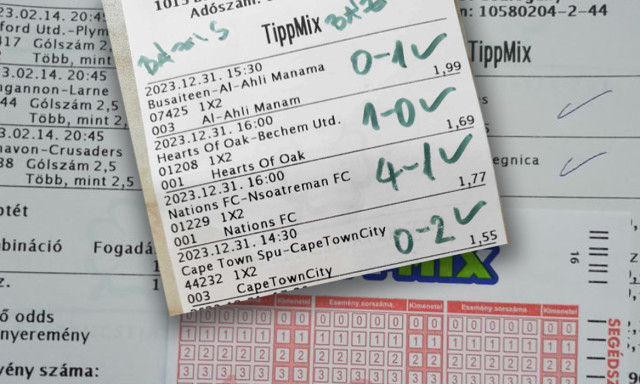 Adószám:
TippMix
2023.12.31. 15:30
Busaiteen-Al-Ahli Manama
07425 1X2
003 Al-Ahli Manam 1,99
0-1 ✓
2023.12.31. 16:00
Hearts Of Oak-Bechem Utd.
01208 1X2
001 Hearts Of Oak 1,69
1-0 ✓
2023.12.31. 16:00
Nations FC-Nsoatreman FC
01229 1X2
001 Nations FC 1,77
4-1 ✓
2023.12.31. 14:30
Cape Town Spu-CapeTownCity
44232 1X2
003 CapeTownCity 1,55
0-2 ✓
3.02.14. 20:45
ford Utd.-Plym
417 Gólszám 2
Több, mint
3.02.14. 20:45
gannon-Larne
44 Gólszám 2,5
Több, mint 2
3.02.14. 20:45
navon-Crusaders
38 Gólszám 2,5
Több, mint 2,5
ptét
mbináció Fogadá
z.
ő odds
nyeremény
vény száma:
: 10580204-2-44
TippMix
egnica
mix
16
SEGÉDSZ
Kimenetel
Esemény sorszáma
Kimenetel
Esemény sorszáma
Kimenetel
0 0 0 0 0 0
1 1 1 1 1 1
2 2 2 2 2 2
3 3 3 3 3 3